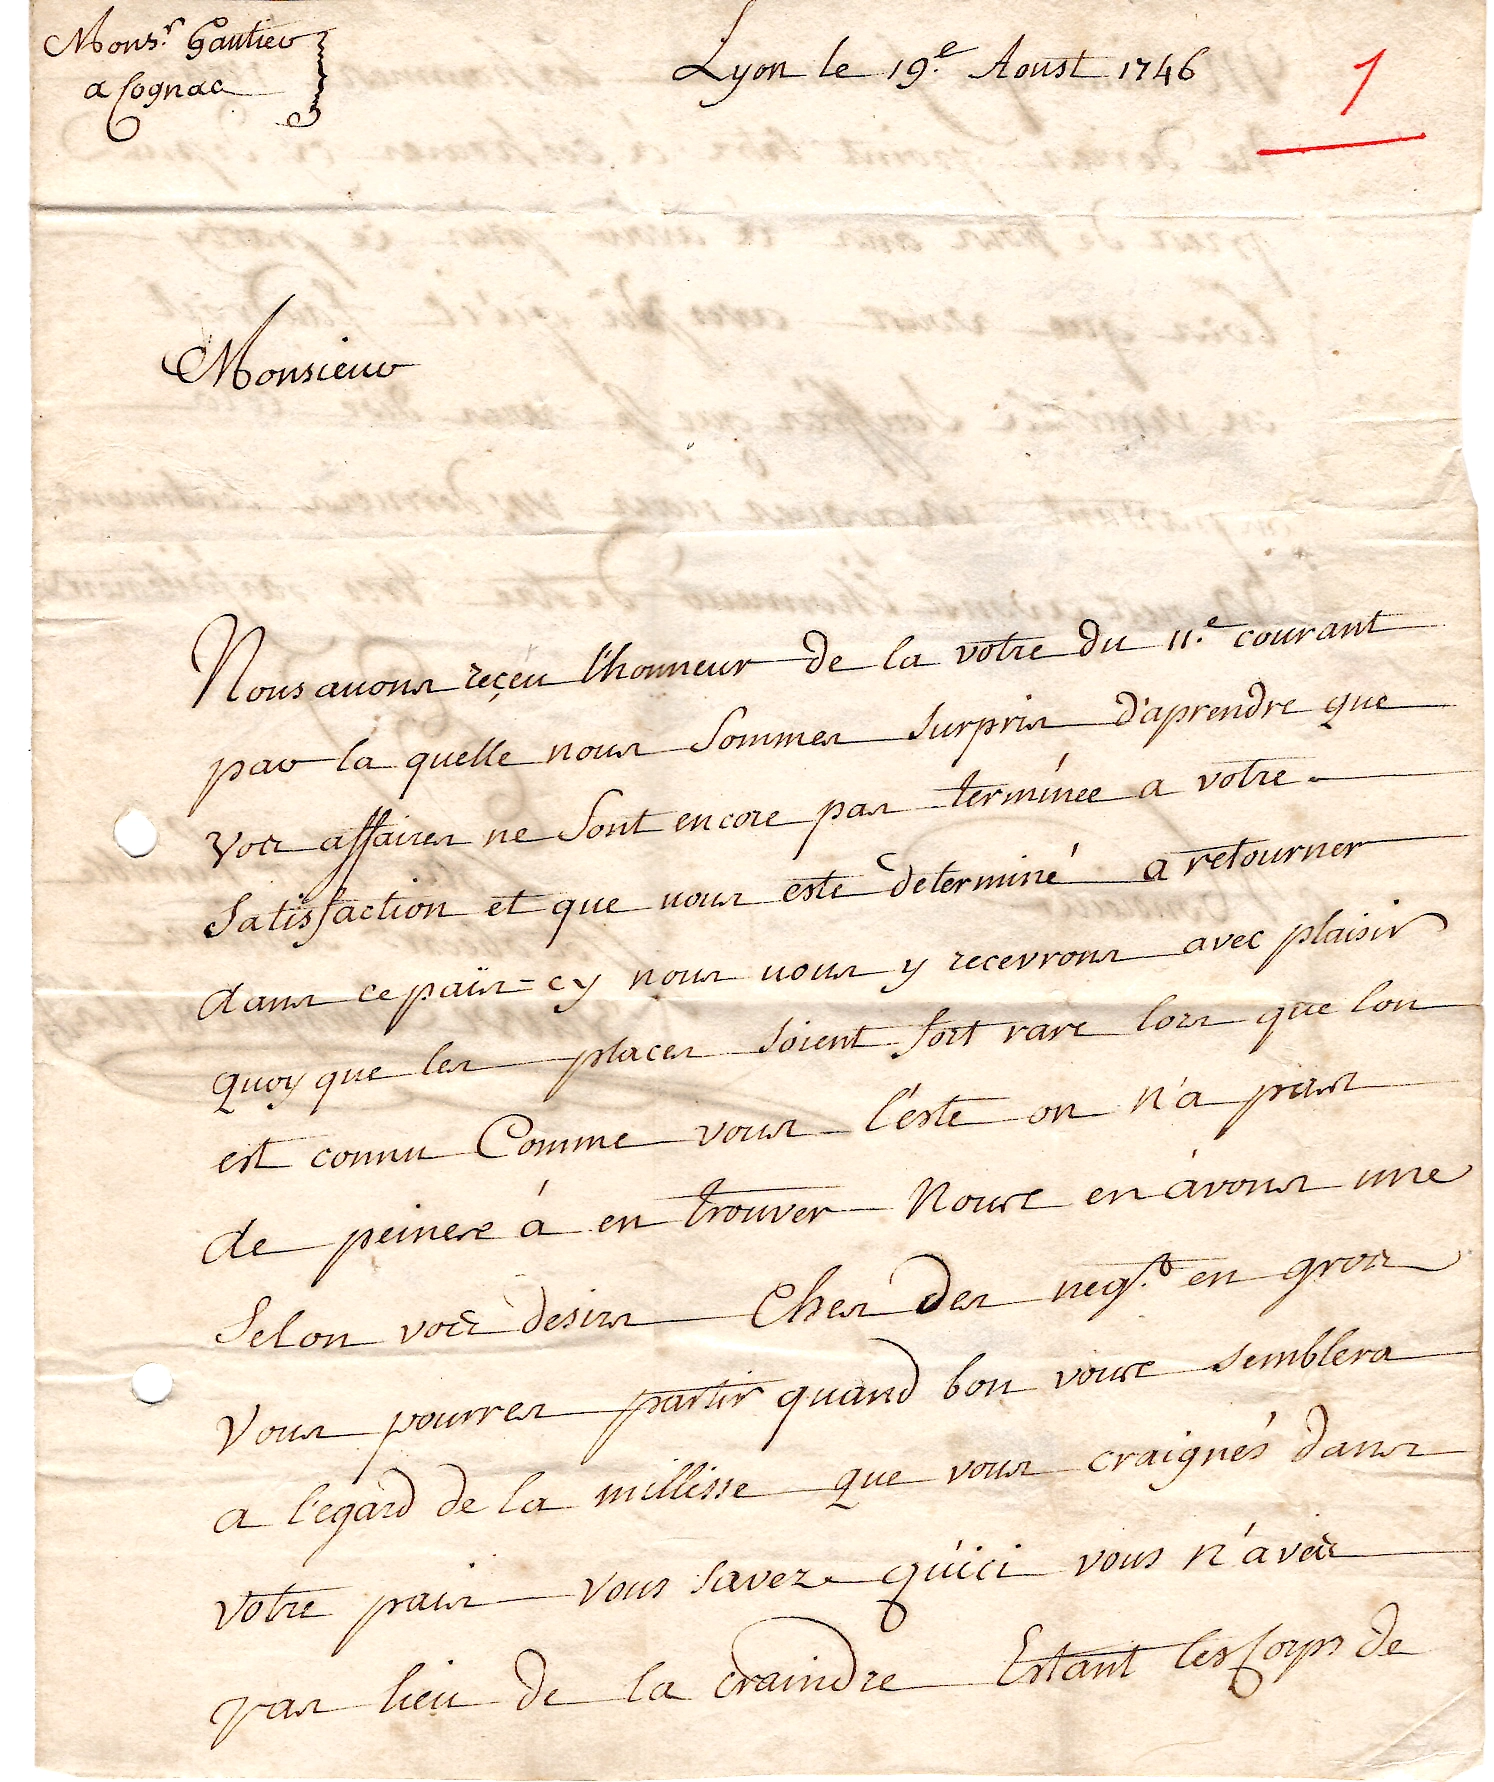 Mons.r Gautier
a Cognac
Lyon le 19.e Aoust 1746
1
Monsieur
Nous auons reçeu l'honneur de la votre du 11.e courant
par la quelle nous Sommes surpris d'aprendre que
vos affaires ne Sont encore pas terminée a votre
Satisfaction et que vous este determiné a retourner
dans ce païs=cy nous vous y recevrons avec plaisir
quoy que les places soient fort rare lors que lon
est connu Comme vous l'éste on n'a pas
de peines á en trouver Nous en ávons une
Selon vos desirs Ches des neg.ts en gros
Vous pourres partir quand bon vous semblera
a l'egard de la millisse que vous craignés dans
votre païs vous savez qu'ici vous n'avés
pas lieu de la craindre Estant les Corps de